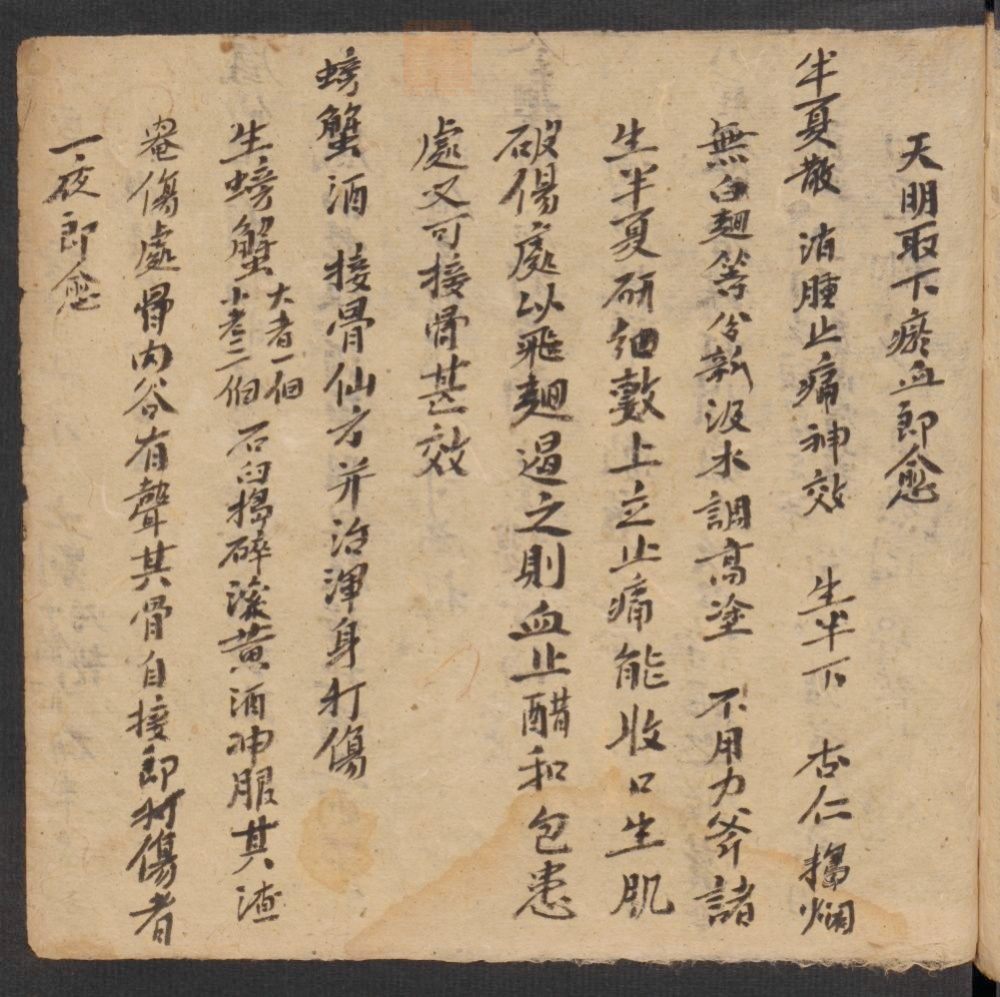 天明取下瘀血即愈
半夏散 消腫止痛神效 生半下 杏仁搗爛
無白麵等分新汲水調高塗 不用力斧諸
生半夏研細敷上立止痛能收口生肌
破傷處以飛麵遏之則血止醋和包患
處又可接骨甚效
螃蟹酒 接骨仙方并治渾身打傷
生螃蟹大者一個小者二個石臼搗碎滾黃酒冲服其渣
罨傷處骨內谷有聲其骨自接即打傷者
一夜即愈